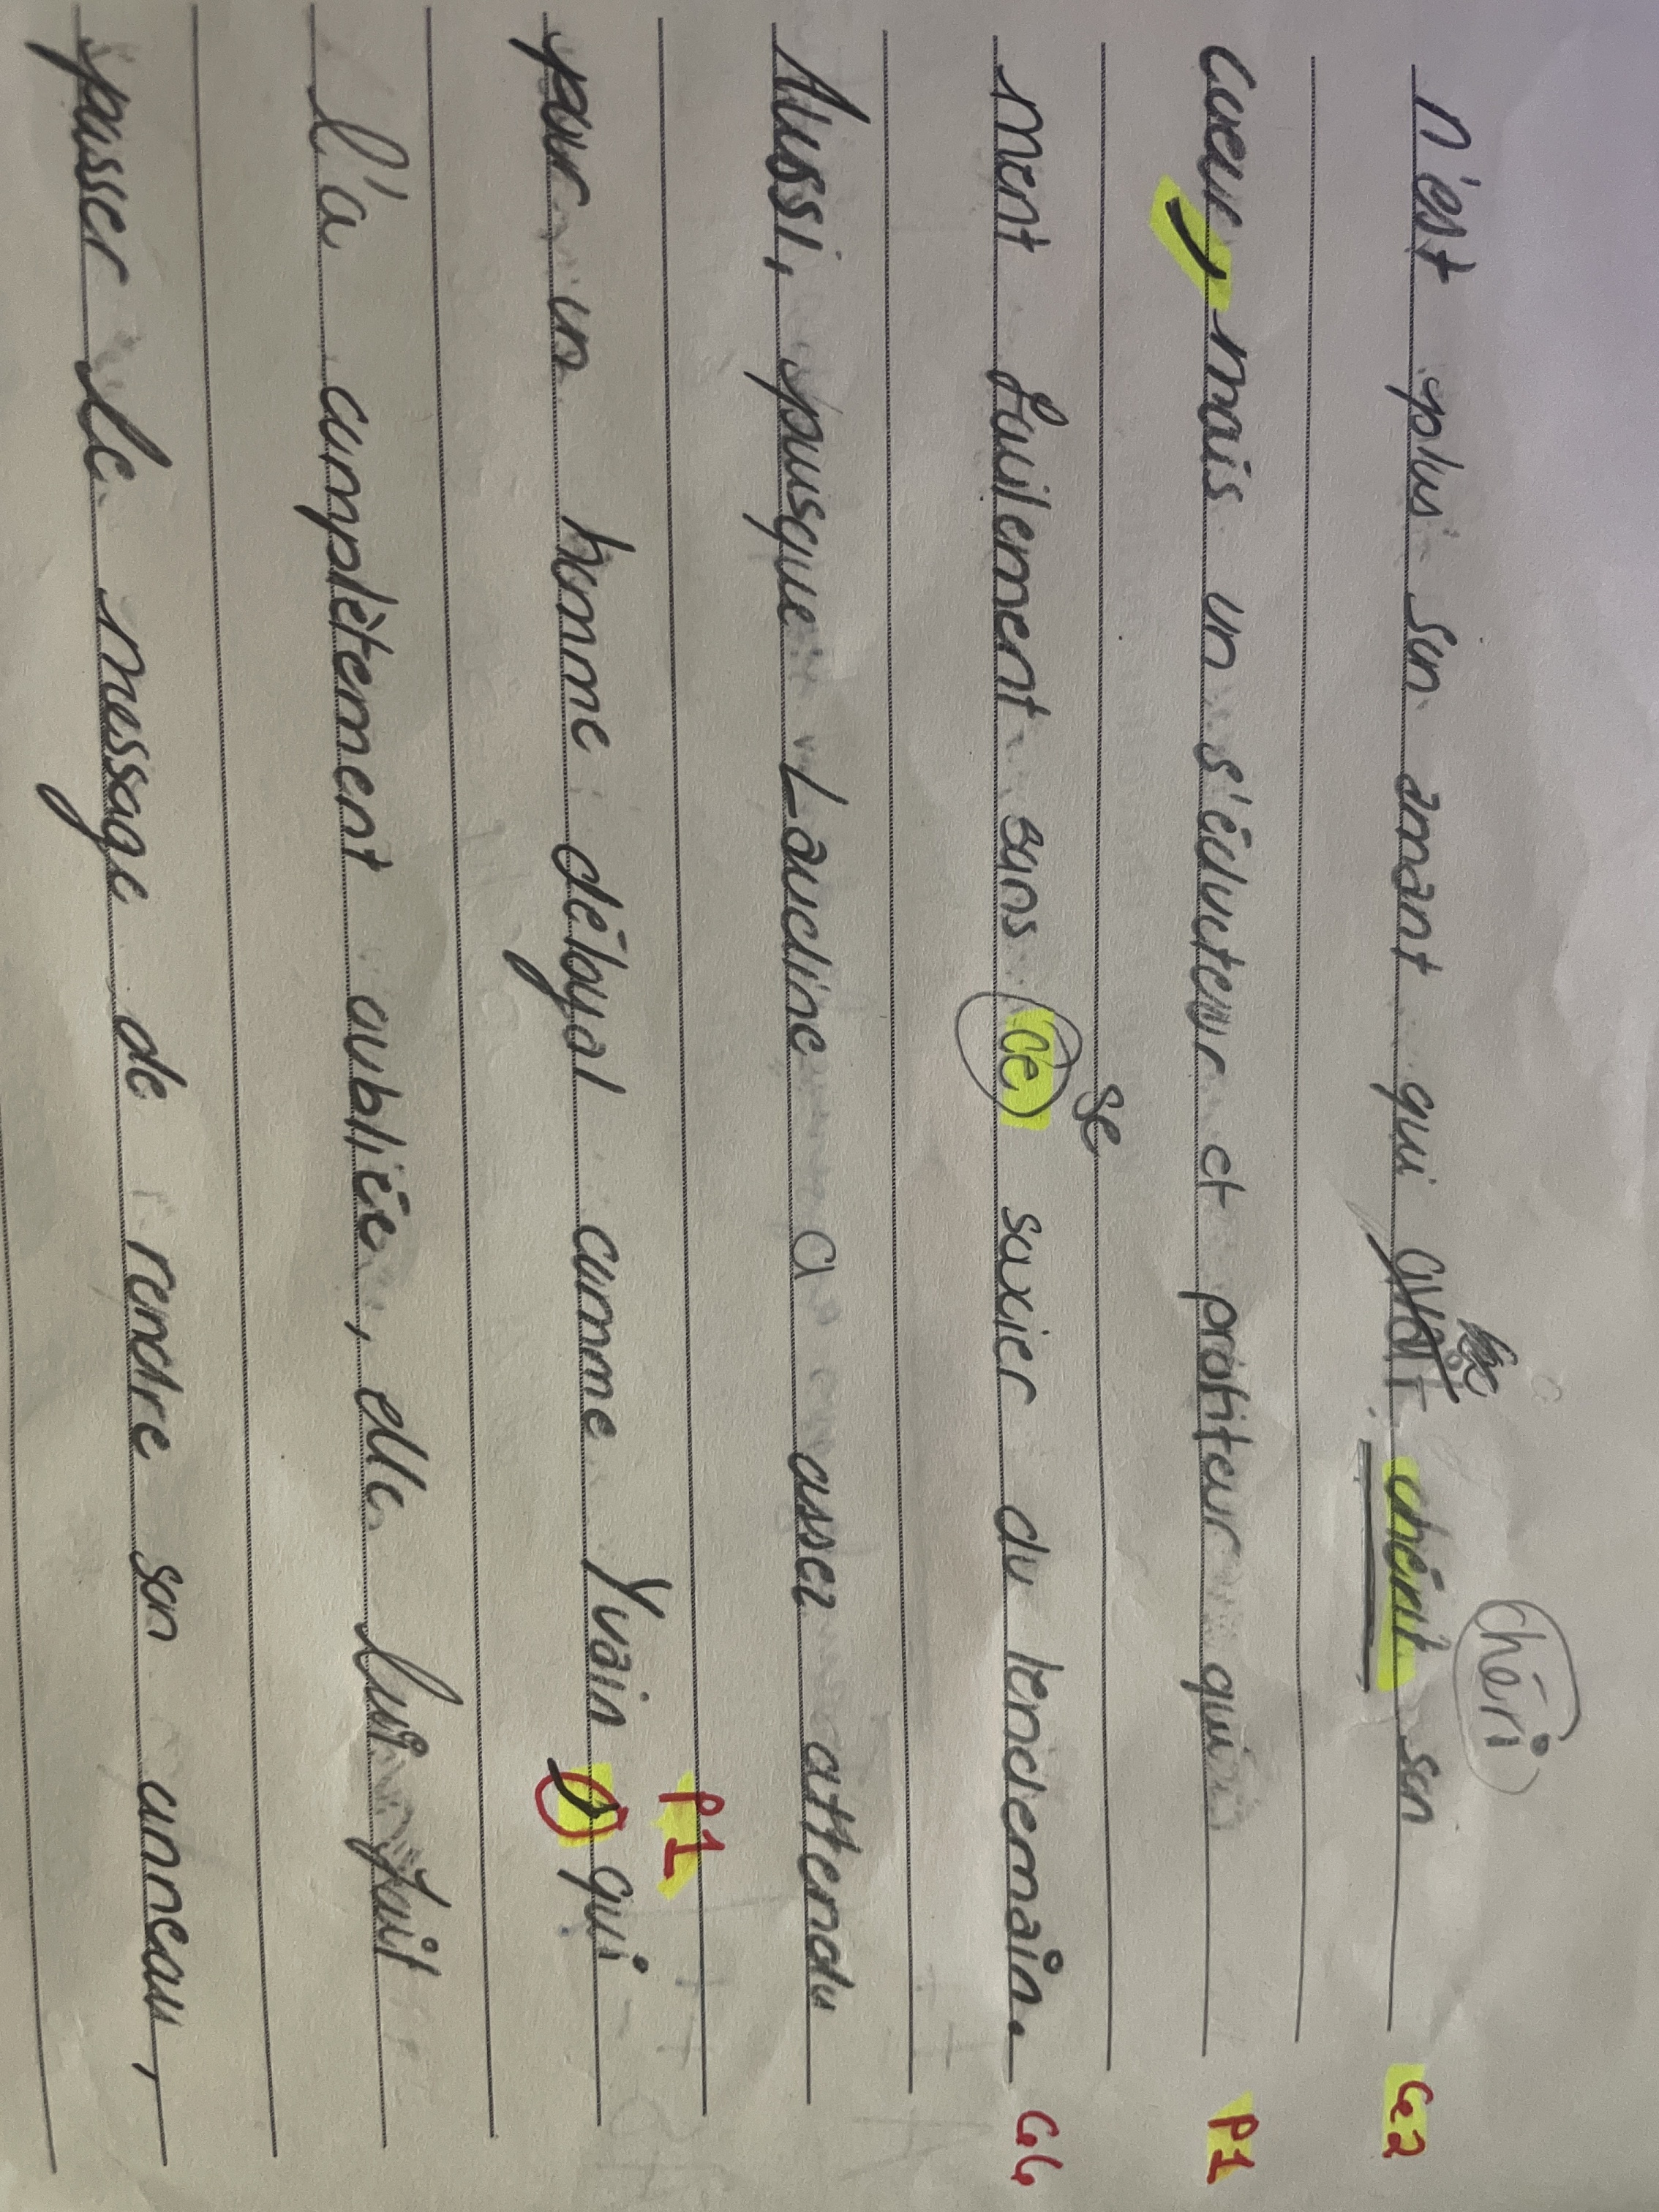 n'est plus son amant qui chérit son chéri G2
coeur, mais un s'écuteur et profiteur qui P1
ment facilement sans ce se soucier du lendemain. G6
Aussi, puisque Laudine a assez attendu
pour un homme déloyal comme Yvain, qui P1
l'a complètement oubliée, elle lui fait
passer le message de rendre son anneau,